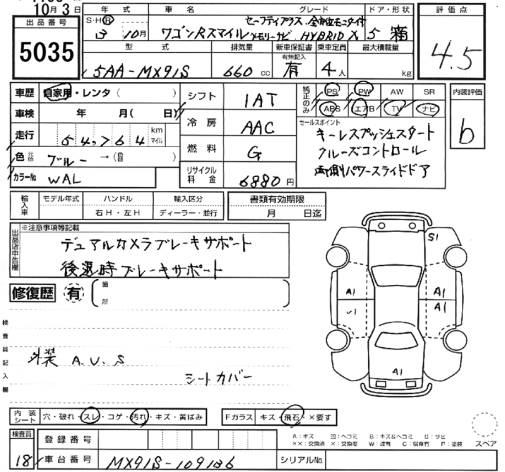 10月3日
出品番号
5035
年式 車名 グレード ドア・形状 評価点
S・H・R 3 10月 ワゴンRスマイル セーフティプラス 全方位モニタ付 メモリーナビ HYBRID X 5 箱 4.5
型式 排気量 新車保証書 乗車定員 最大積載量
有無記入
5AA-MX91S 660cc 有 4人 kg
車歴 自家用・レンタ( )
車検 年 月( 日)
走行 54,764 km マイル
色 ブルー →( )
カラーNo WAL
シフト 1AT
冷房 AAC
燃料 G
リサイクル料金 6880円
純正のみ PS PW AW SR
ABS エアB TV ナビ
内装評価
b
セールスポイント
キーレスプッシュスタート
クルーズコントロール
両側パワースライドドア
輸入車 モデル年式 ハンドル 輸入区分 書類有効期限
右H・左H ディーラー・並行 月 日迄
出品店申告欄 ※注意事項等記載
デュアルカメラブレーキサポート
後退時ブレーキサポート
修復歴 有 箇所
検査員記入欄
外装 A.U.S
シートカバー
S1
A1 A1
A1
A1
内装シート 穴・破れ・スレ・コゲ・汚れ・キズ・黄ばみ Fガラス キズ・飛石・×要す
スペア
検査員 18
登録番号
車台番号 MX91S-109136 シリアルNo.